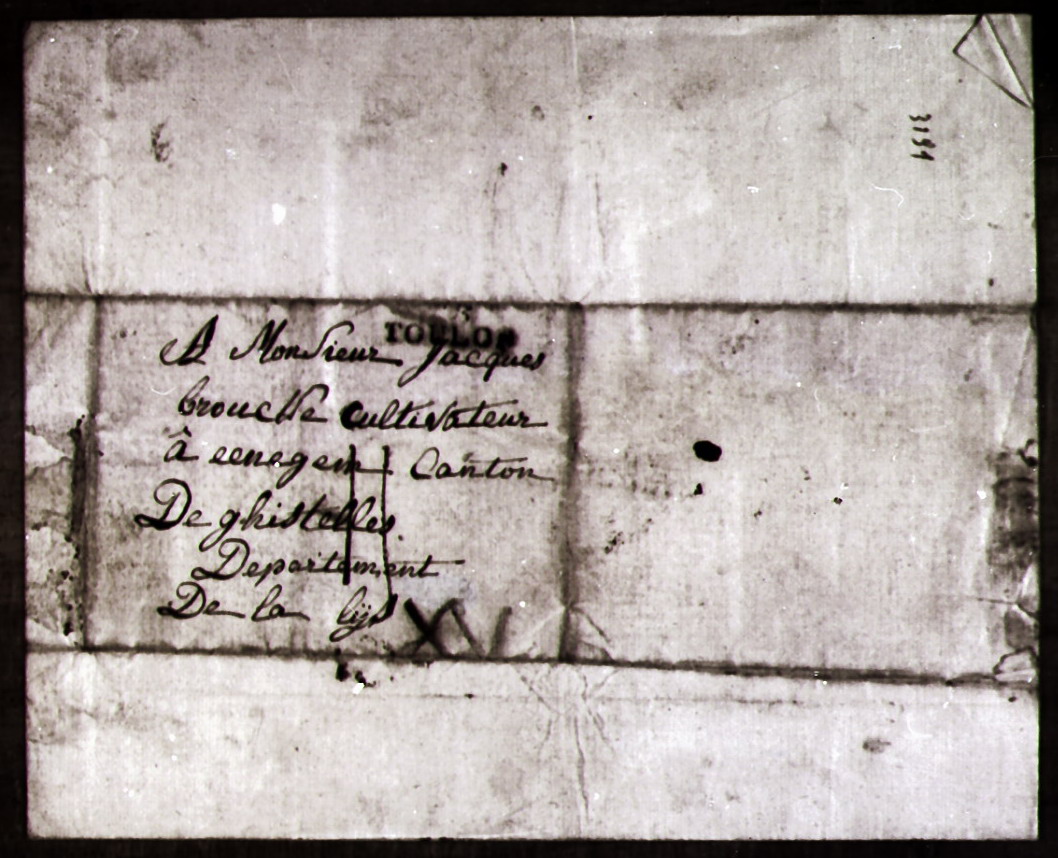 3151
TOULON
A Monsieur Jacques
brouckke Cultivateur
à eenegem Canton
De ghistelles
Departement
De la lijs